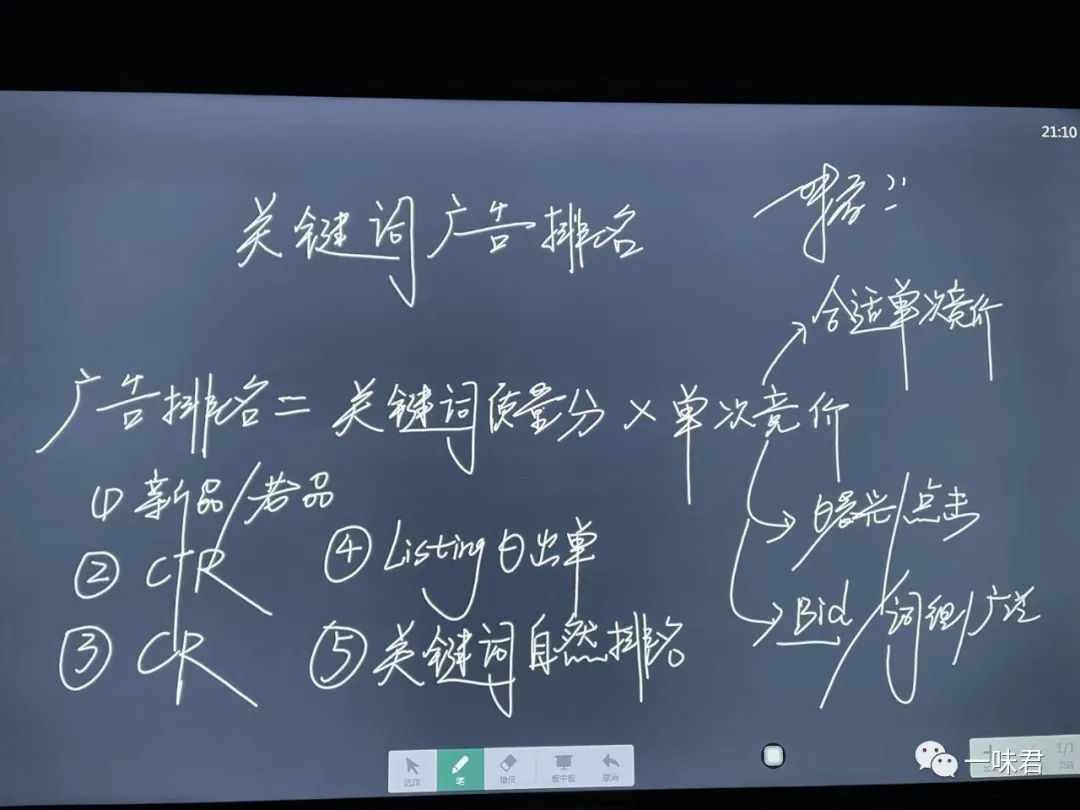 21:10
关键词广告排名
合适单次竞价
广告排名 = 关键词质量分 × 单次竞价
① 新品/老品
曝光/点击
② CTR
④ Listing 日出单
Bid/词组/广泛
③ CR
⑤ 关键词自然排名
选择
笔
擦除
1/1
一味君